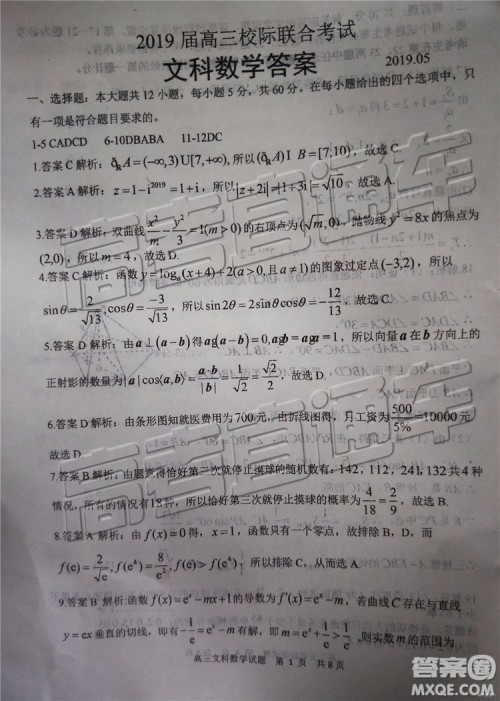 2019届高三校际联合考试
文科数学答案
2019.05
一、选择题：本大题共12小题，每小题5分，共60分，在每小题给出的四个选项中，只
有一项是符合题目要求的。
1-5 CADCD 6-10DBABA 11-12DC
1.答案C 解析：ðRA=(−∞,3)U[7,+∞),所以(ðRA)I B=[7,10)，故选C.
2.答案A 解析：z=1−i^2019=1+i，所以|z+2i|=|1+3i|=√10，故选A.
3.答案D 解析：双曲线x²/m−y²/3=1(m>0)的右顶点为(√m,0)，抛物线y²=8x的焦点为
(2,0)，所以m=4，故选D.
4.答案C 解析：函数y=logₐ(x+4)+2(a>0,且a≠1)的图象过定点(−3,2)，所以
sinθ=2/√13,cosθ=−3/√13，所以sin2θ=2sinθcosθ=−12/13，故选C.
5.答案D 解析：由a⊥(a−b)得
所以向量a在b方向上的
正射影的数量为|a|cos⟨a,b⟩=a·b/|b|=1/√2=√2/2，故选D.
6.答案D 解析：由条形图知就医费用为700元，由折线图得，月工资为500/5%=10000元
故选D.
7.答案B 解析：由题意得恰好第三次就停止摸球的随机数有：142，112，241，132共4种
情况，所有的情况有18种，所以恰好第三次就停止摸球的概率为4/18=2/9，故选B.
8.答案A 解析：由f(x)=0得，x=1，函数只有一个零点，故排除B，D，而
f(e)=2/√e,f(e⁴)=8/e²,f(e)>f(e⁴)，所以排除C，从而选A.
9.答案B 解析:函数f(x)=eˣ−mx+1的导数为f'(x)=eˣ−m，若曲线C存在与直线
y=ex垂直的切线，即有
则实数m的范围为
高三文科数学试题 第 1 页 共 8 页
高考直通车
答案圈
MXQE.COM